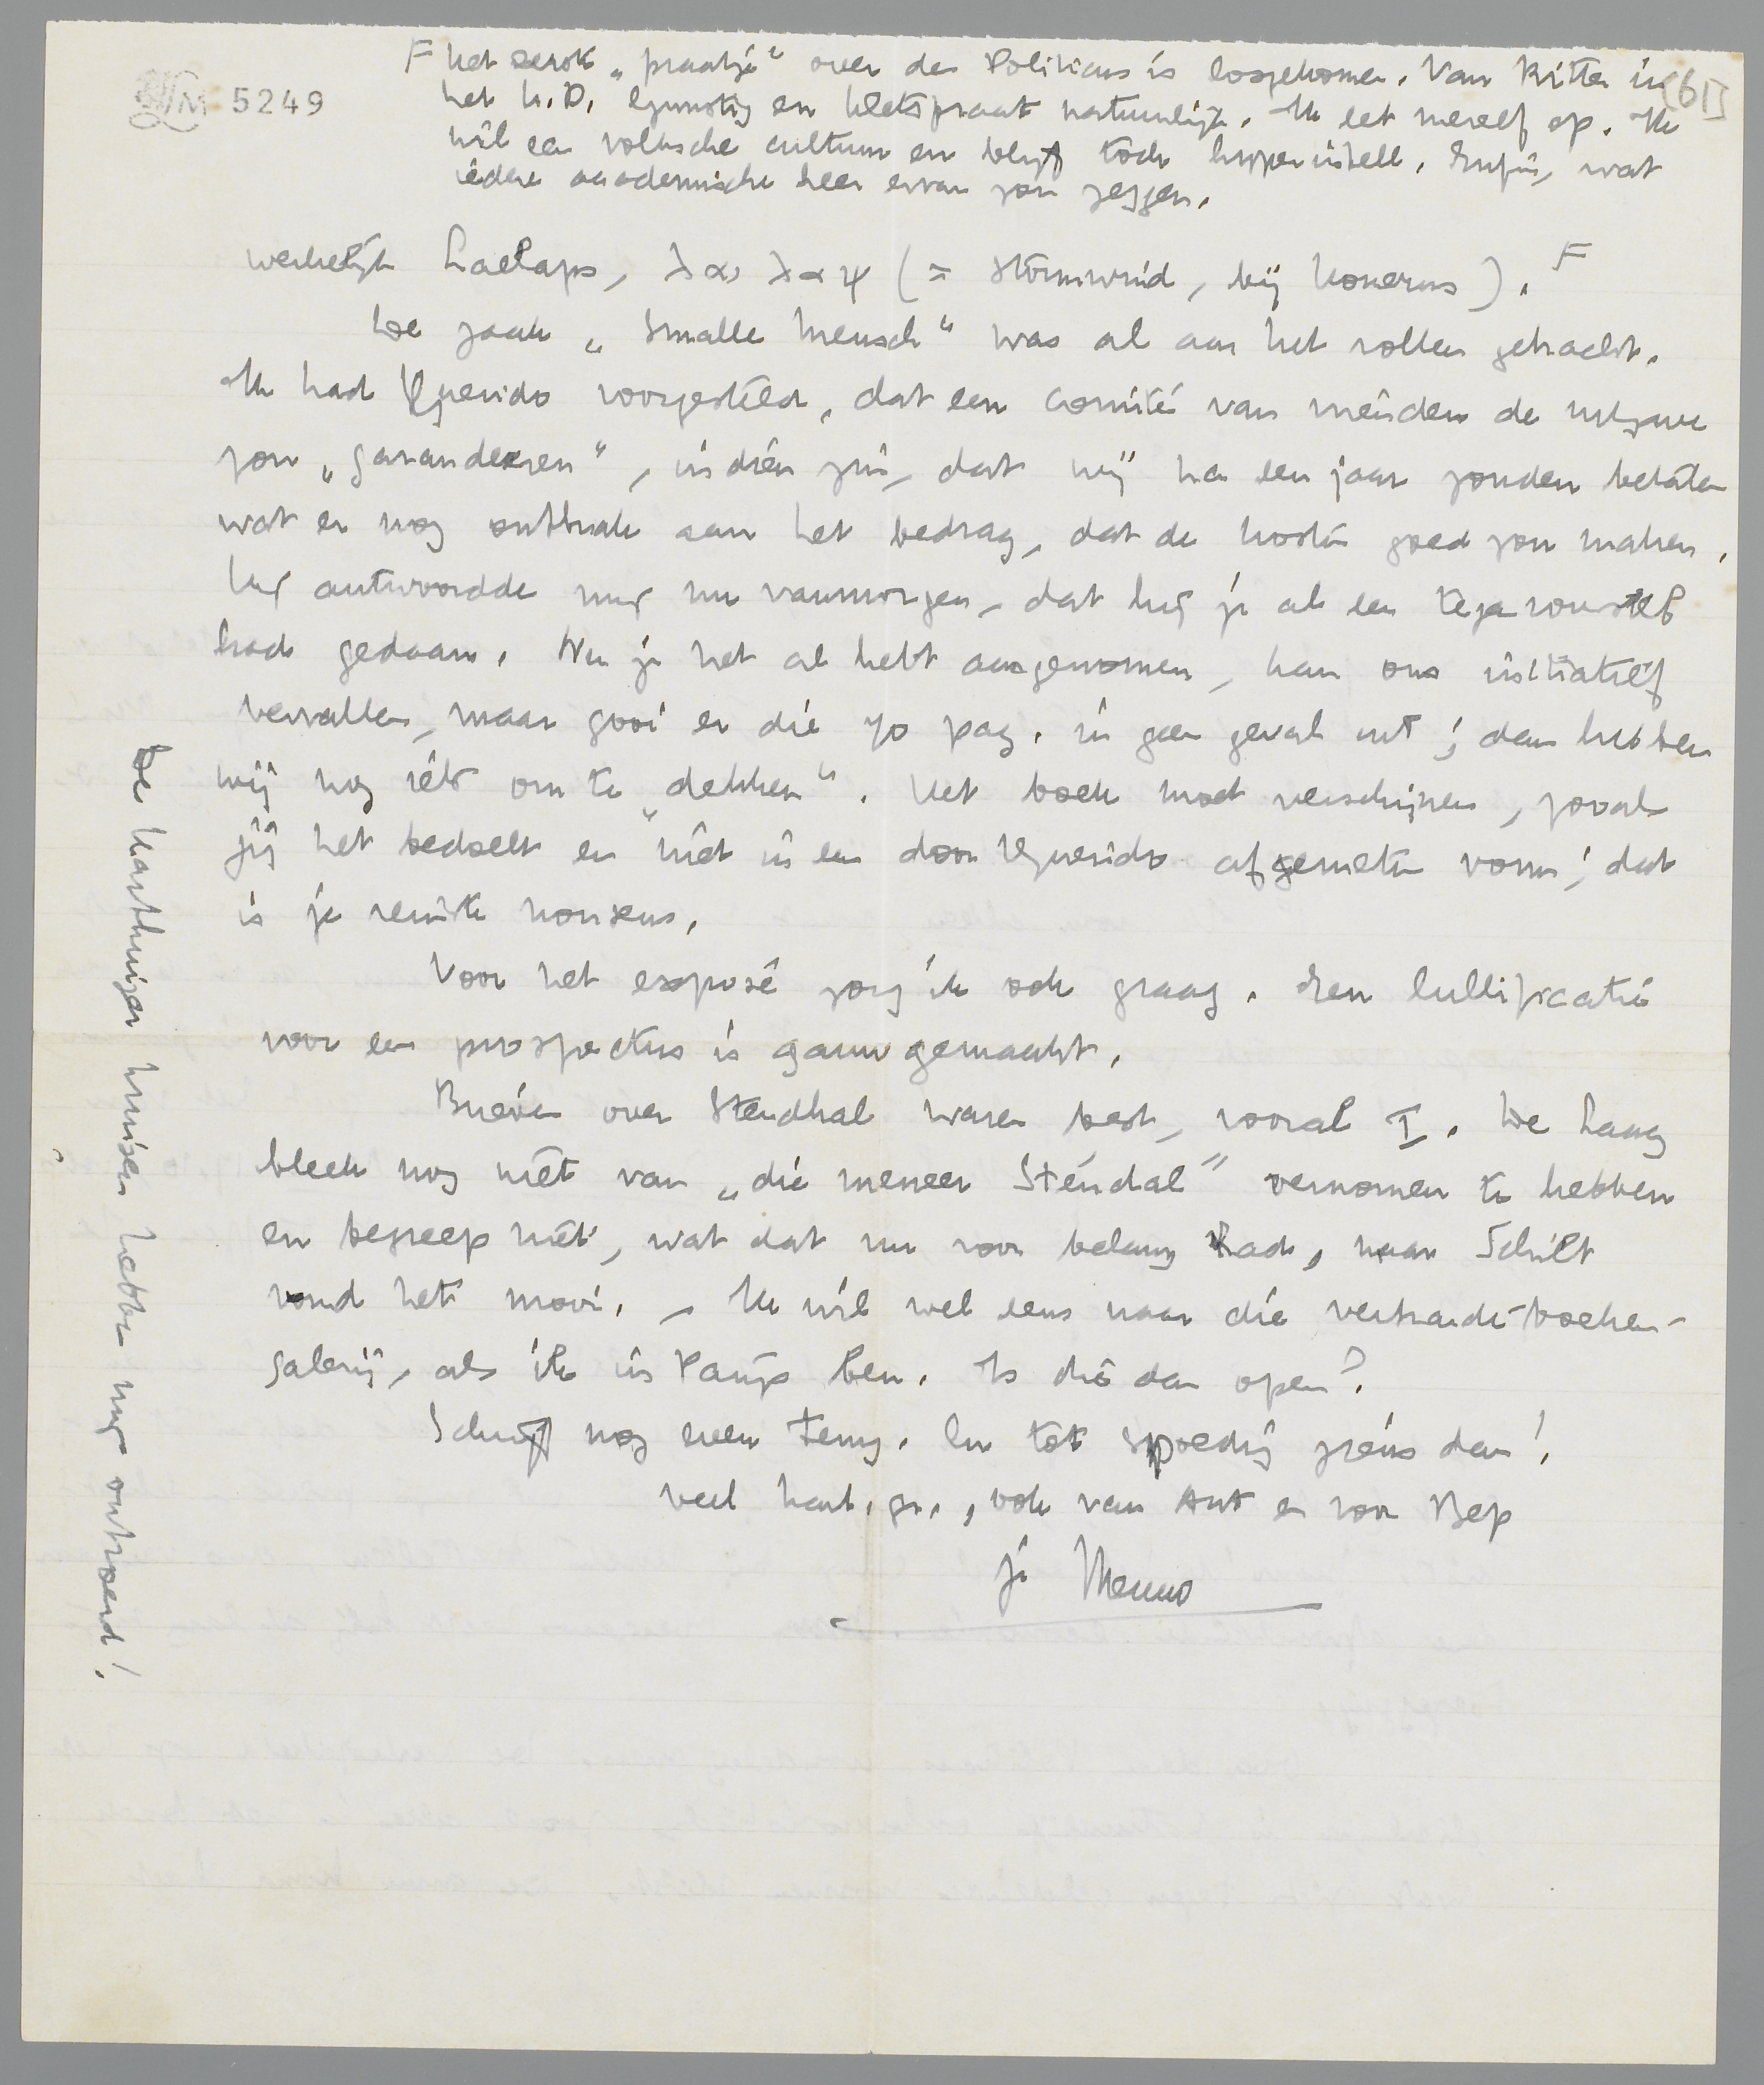 LM 5249
[61]
F het eerste „praatje" over den Politicus is losgekomen. Van Ritter in
het U.D. Gunstig en kletspraat natuurlijk. Ik let mezelf op. Ik
wil een volksche cultuur en blijf toch hyperintell. Enfin, wat
iedere academische heer ervan zou zeggen.
werkelijk Laelaps, λαιλαψ (= stormwind, bij Homerus). F
De zaak „Smalle Mensch" was al aan het rollen gebracht.
Ik had Querido voorgesteld, dat een comité van vrienden de uitgave
zou „garandeeren", in dien zin, dat wij na een jaar zouden betalen
wat er nog ontbrak aan het bedrag, dat de kosten goed zou maken.
Hij antwoordde mij nu vanmorgen, dat hij je al een tegenvoorstel
had gedaan. Nu je het al hebt aangenomen, kan ons initiatief
vervallen, maar gooi er die 70 pag. in geen geval uit; dan hebben
wij nog iets om te „dekken". Het boek moet verschijnen, zooals
jij het bedoelt en niet in een door Querido afgemeten vorm; dat
is je reinste nonsens.
Voor het exposé zorg ik ook graag. Een lullificatie
voor een prospectus is gauw gemaakt.
Brieven over Stendhal waren best, vooral I. De Haag
bleek nog niet van „die meneer Stendal" vernomen te hebben
en begreep niet, wat dat nu voor belang had, maar Schilt
vond het mooi. – Ik wil wel eens naar die verbrande-boeken-
galerij, als ik in Parijs ben. Is die dan open?
Schrijf nog even terug. En tot spoedig ziens dan!
veel hart. gr., ook van Ant en voor Bep
je Menno
De Harthuizer hebben mij ontroerd!